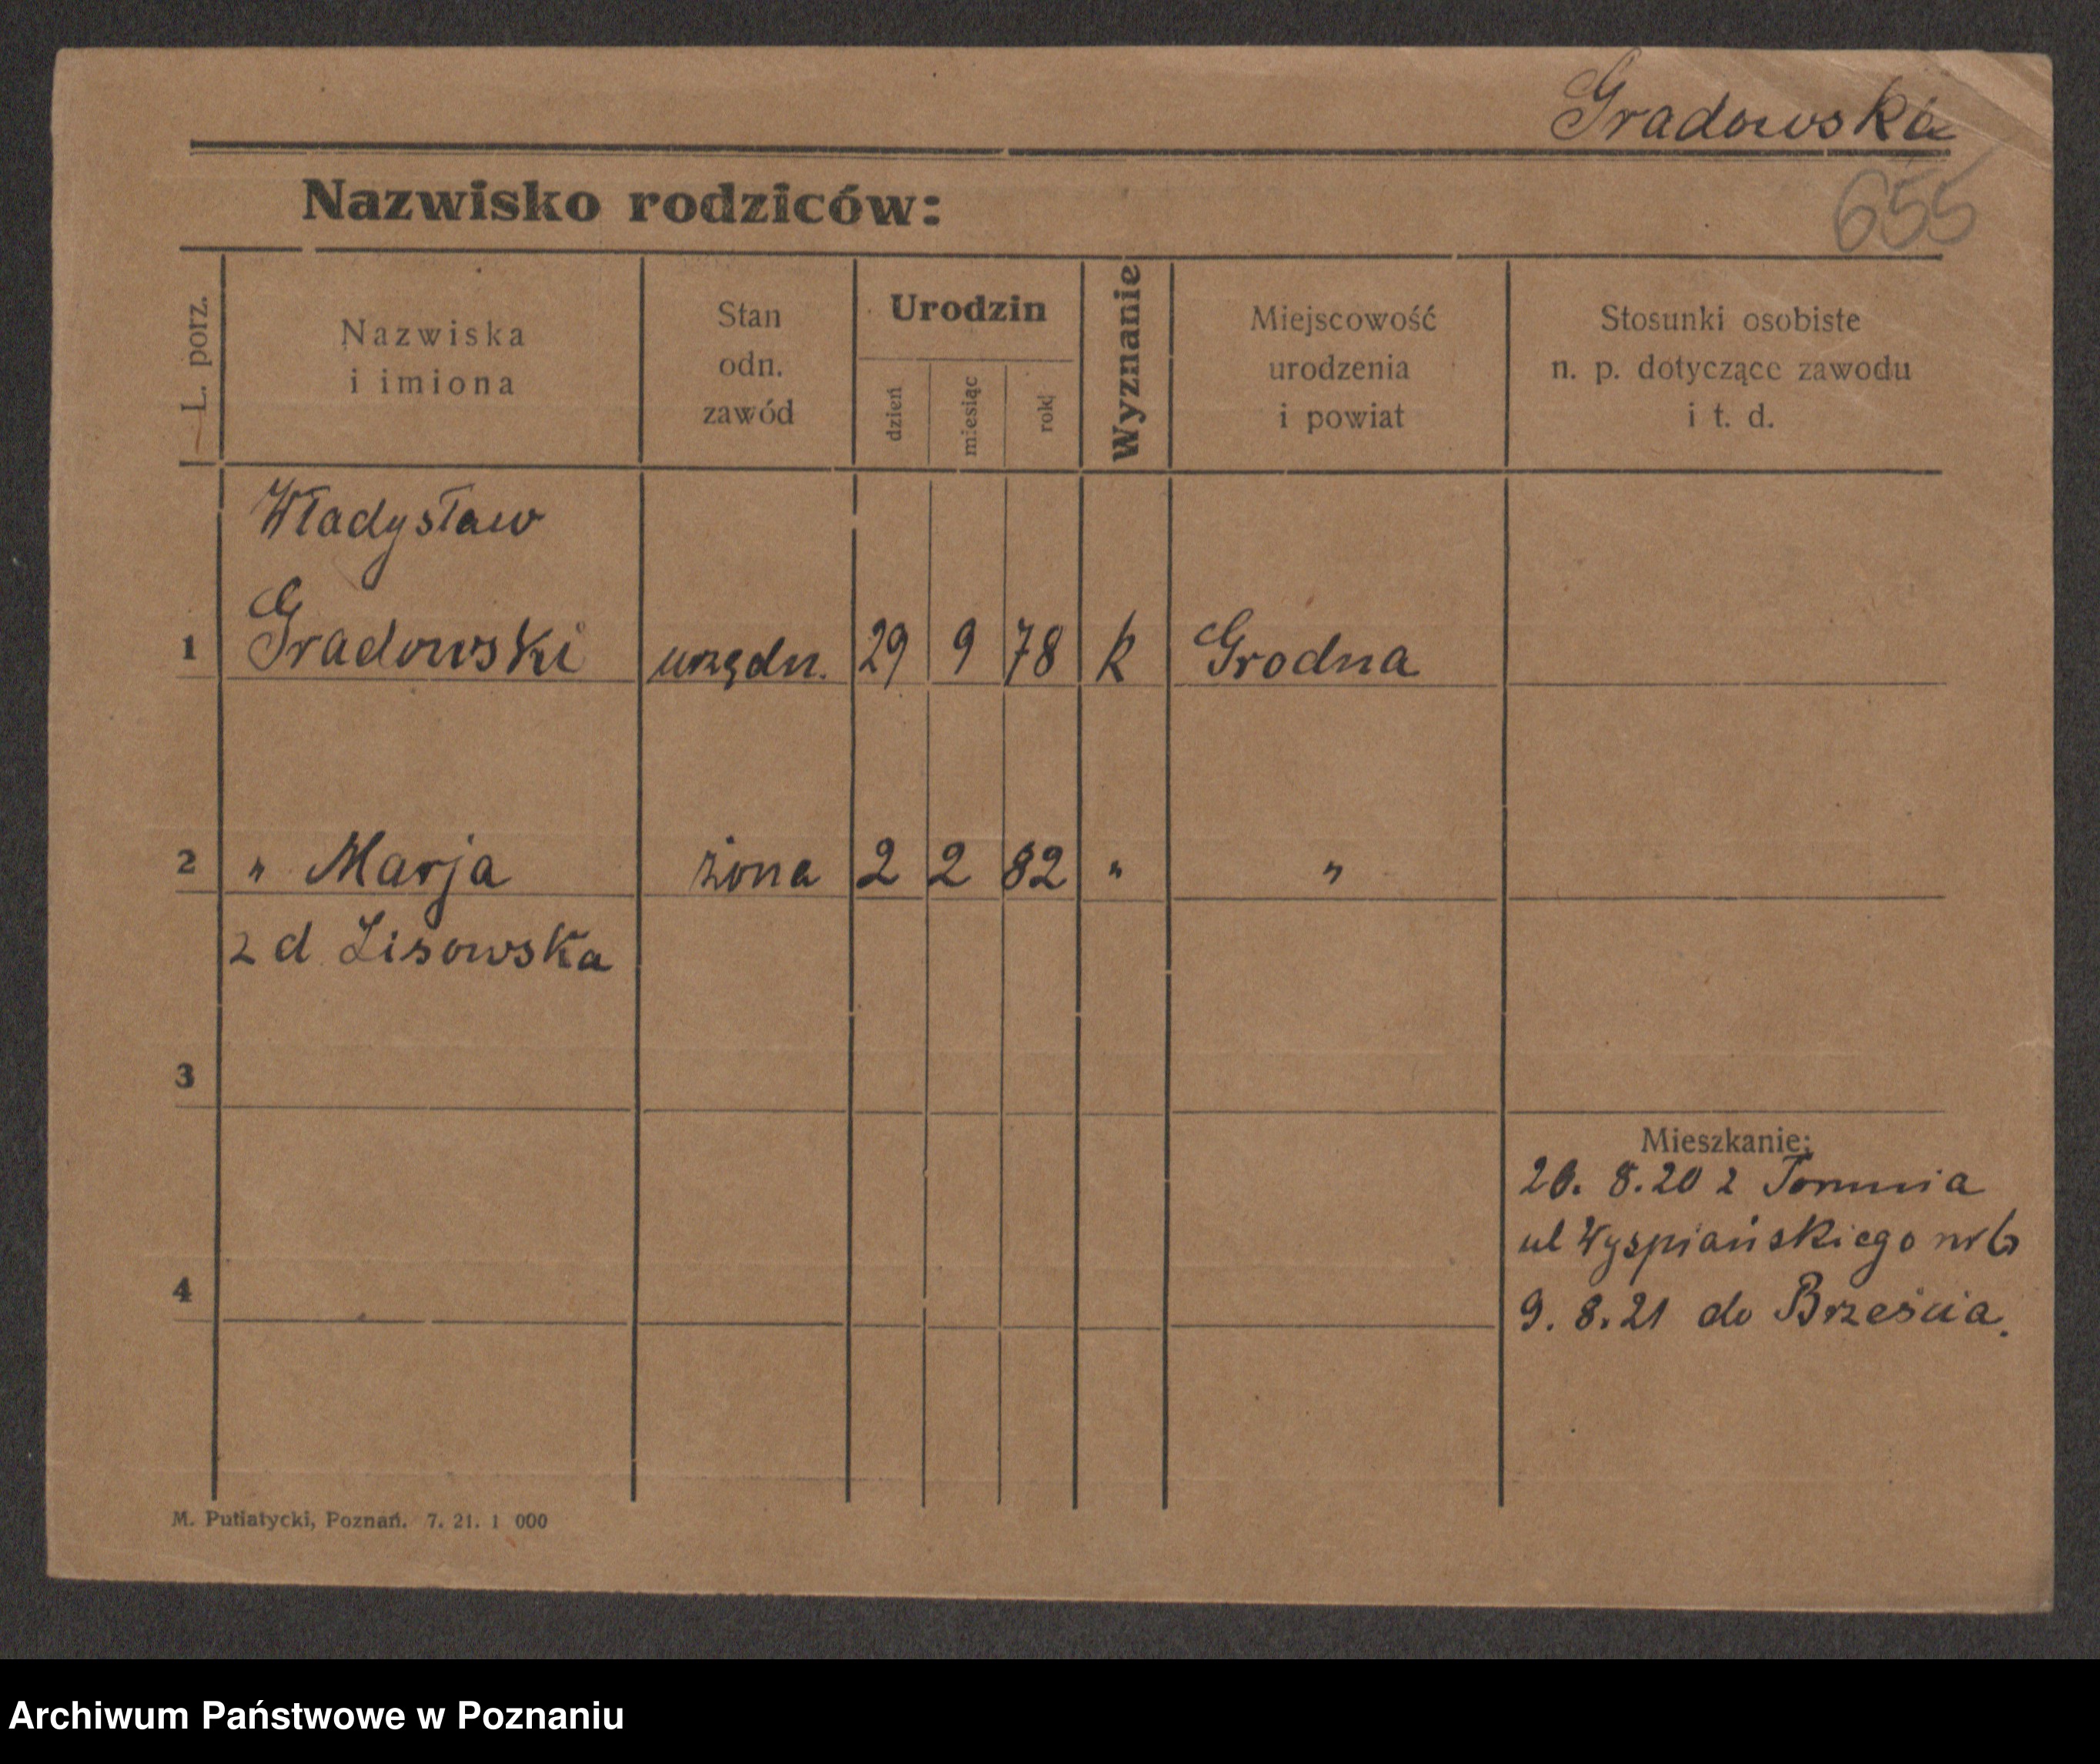 Gradowski
655
Nazwisko rodziców:
L. porz.
Nazwiska
i imiona
Stan
odn.
zawód
Urodzin
dzień
miesiąc
rok
Wyznanie
Miejscowość
urodzenia
i powiat
Stosunki osobiste
n. p. dotyczące zawodu
i t. d.
Władysław
1 Gradowski urzędn. 29 9 78 k Grodna
2 " Marja żona 2 2 82 " "
z d Lisowska
3
Mieszkanie:
20. 8.20 z Torunia
ul Wyspiańskiego nr 6
4
9. 8.21 do Brześcia.
M. Putiatycki, Poznań. 7. 21. 1 000
Archiwum Państwowe w Poznaniu